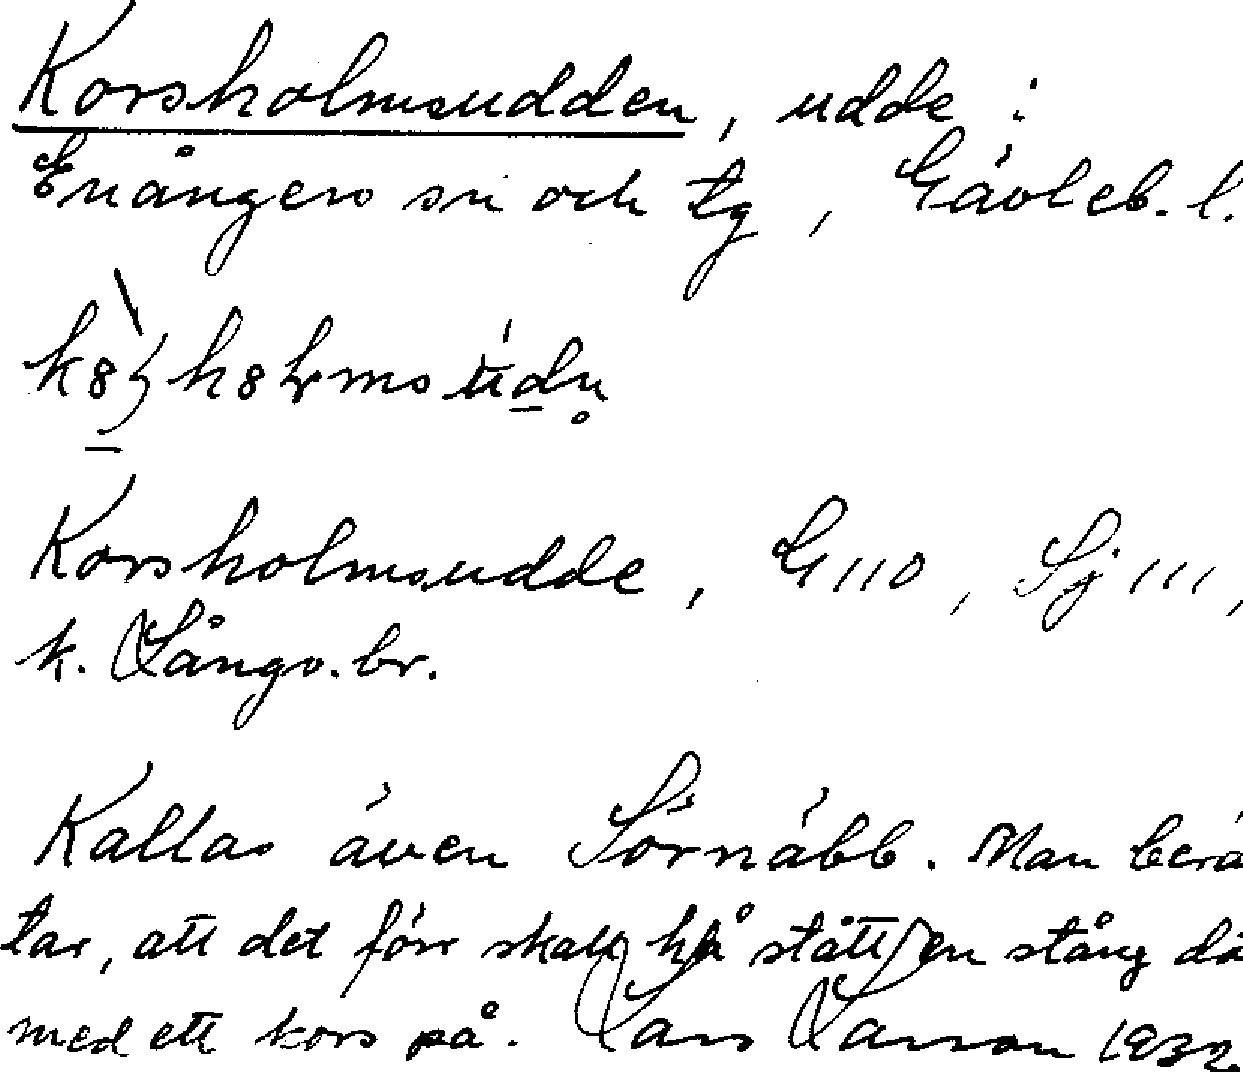 Korsholmsudden, udde i
Enångers sn och tg, Gävleb. l.
Korsholmsudde, G 110, Sj 111,
k. Långv. br.
Kallas även Sörnäbb. Man berä
tar, att det förr skall ha stått en stång dä
med ett kors på. Lars Larson 1932